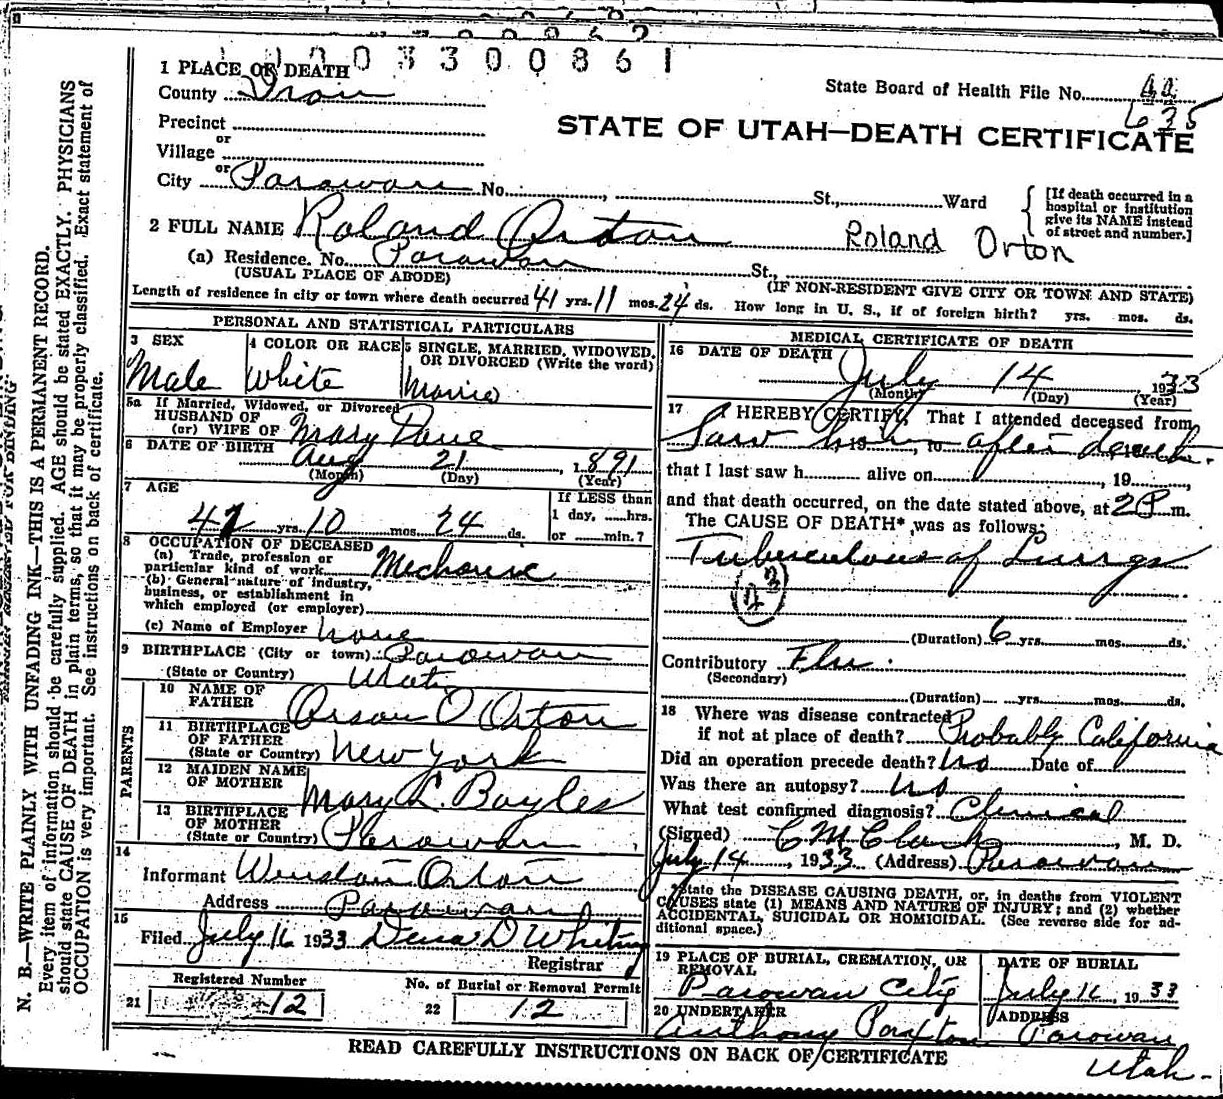 1 0 0 3 3 0 0 8 6 1
1 PLACE OF DEATH
County Iron
State Board of Health File No. 635
Precinct
or
Village
STATE OF UTAH—DEATH CERTIFICATE
or
City Parowan No. , St., Ward
[If death occurred in a hospital or institution give its NAME instead of street and number.]
2 FULL NAME Roland Orton Roland Orton
(a) Residence. No. Parowan St.,
(USUAL PLACE OF ABODE) (IF NON-RESIDENT GIVE CITY OR TOWN AND STATE)
Length of residence in city or town where death occurred 41 yrs. 11 mos. 24 ds. How long in U. S., if of foreign birth? yrs. mos. ds.
PERSONAL AND STATISTICAL PARTICULARS
3 SEX
Male
4 COLOR OR RACE
White
5 SINGLE, MARRIED, WIDOWED, OR DIVORCED (Write the word)
5a If Married, Widowed, or Divorced
HUSBAND OF
(or) WIFE OF Mary
6 DATE OF BIRTH Aug 21, 1891
(Month) (Day) (Year)
7 AGE
yrs. 10 mos. 24 ds.
If LESS than
1 day, hrs.
or min.?
8 OCCUPATION OF DECEASED
(a) Trade, profession or
particular kind of work Mechanic
(b) General nature of industry,
business, or establishment in
which employed (or employer)
(c) Name of Employer None
9 BIRTHPLACE (City or town) Parowan
(State or Country) Utah
PARENTS
10 NAME OF
FATHER Orson O Orton
11 BIRTHPLACE
OF FATHER
(State or Country) New York
12 MAIDEN NAME
OF MOTHER Mary L. Bayles
13 BIRTHPLACE
OF MOTHER
(State or Country) Parowan
14
Informant Winston Orton
Address Parowan
15
Filed July 16 1933 D Whitney
Registrar
Registered Number
21 12
No. of Burial or Removal Permit
22 12
MEDICAL CERTIFICATE OF DEATH
16 DATE OF DEATH July 14, 1933
(Month) (Day) (Year)
17 I HEREBY CERTIFY, That I attended deceased from
Saw him, 19 , to after death.
that I last saw h alive on , 19 ,
and that death occurred, on the date stated above, at 2 P m.
The CAUSE OF DEATH* was as follows:
Tuberculous of Lungs
23
(Duration) 6 yrs. mos. ds.
Contributory Flu.
(Secondary)
(Duration) yrs. mos. ds.
18 Where was disease contracted
if not at place of death? Probably California
Did an operation precede death? no Date of
Was there an autopsy? no
What test confirmed diagnosis? Clinical
(Signed) C M Clark, M. D.
July 14, 1933 (Address) Parowan
*State the DISEASE CAUSING DEATH, or, in deaths from VIOLENT
CAUSES state (1) MEANS AND NATURE OF INJURY; and (2) whether
ACCIDENTAL, SUICIDAL OR HOMICIDAL. (See reverse side for ad-
ditional space.)
19 PLACE OF BURIAL, CREMATION, OR
REMOVAL
Parowan City
DATE OF BURIAL
July 16, 1933
20 UNDERTAKER
Anthony Paxton
ADDRESS
Parowan
Utah.
READ CAREFULLY INSTRUCTIONS ON BACK OF CERTIFICATE
N. B.—WRITE PLAINLY WITH UNFADING INK—THIS IS A PERMANENT RECORD.
Every item of information should be carefully supplied. AGE should be stated EXACTLY. PHYSICIANS
should state CAUSE OF DEATH in plain terms, so that it may be properly classified. Exact statement of
OCCUPATION is very important. See instructions on back of certificate.